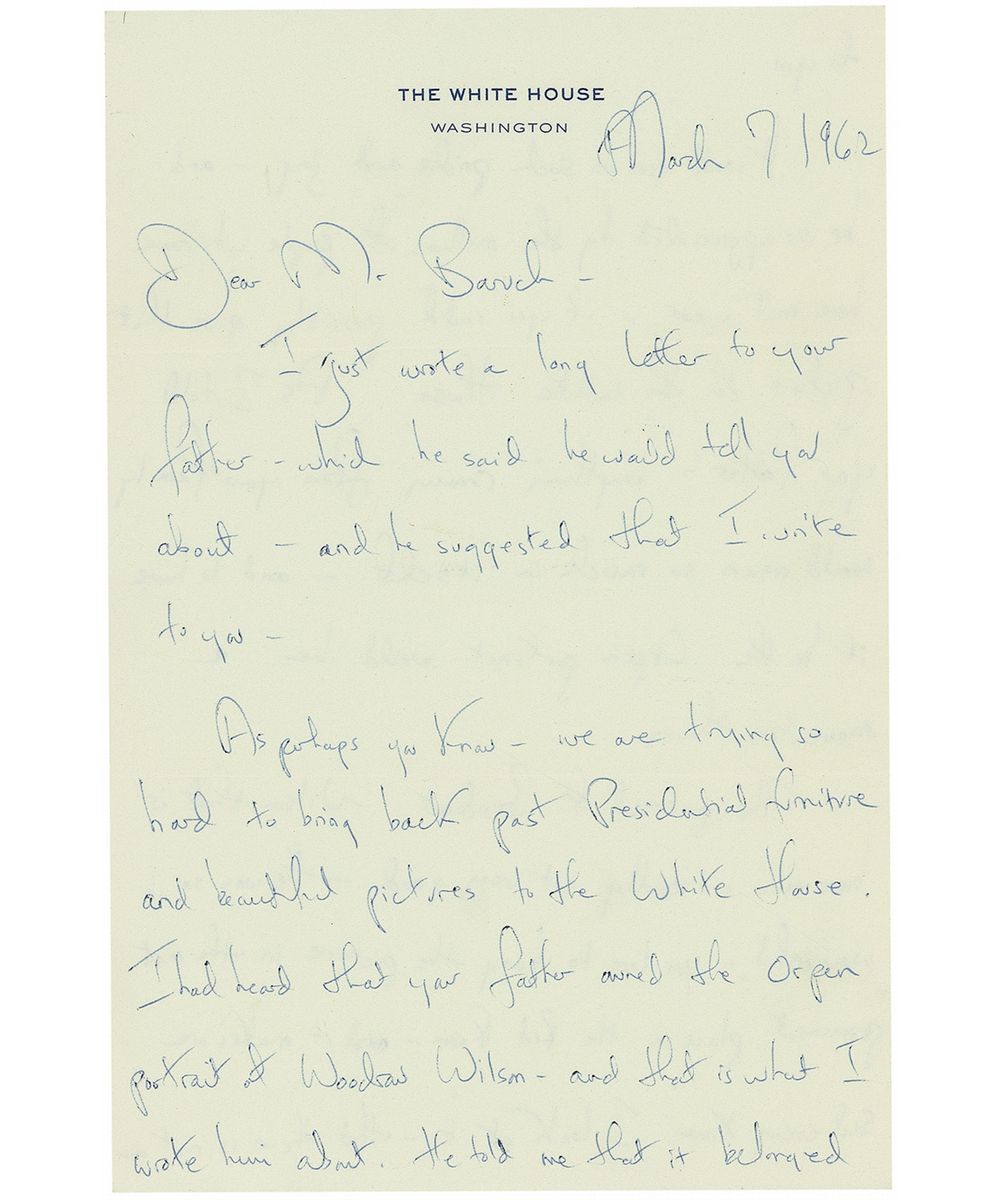 THE WHITE HOUSE
WASHINGTON
March 7 1962
Dear Mr Baruch -
I just wrote a long letter to your
father - which he said he would tell you
about - and he suggested that I write
to you -
As perhaps you know - we are trying so
hard to bring back past Presidential furniture
and beautiful pictures to the White House.
I had heard that your father owned the Orpen
portrait of Woodrow Wilson - and that is what I
wrote him about. He told me that it belonged